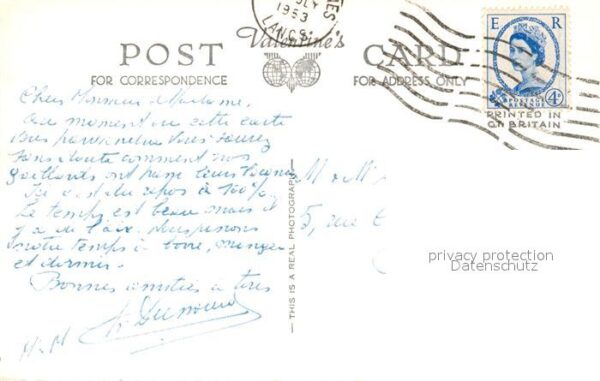 JLY
1953
LANCS.
E R
4D
POSTAGE
REVENUE
PRINTED IN
GT BRITAIN
POST Valentine's CARD
FOR CORRESPONDENCE FOR ADDRESS ONLY
Chers Monsieur Madame.
Au moment où cette carte
vous parviendra vous saurez
sans doute comment nos
gaillards ont passé leurs
Ici c'est du repos à 100%
Le temps est beau mais il
y a de l'air. Nous passons
notre temps à boire, manger
et dormir.
Bonnes amitiés à tous
M. M
M & M
5, rue
THIS IS A REAL PHOTOGRAPH
privacy protection
Datenschutz